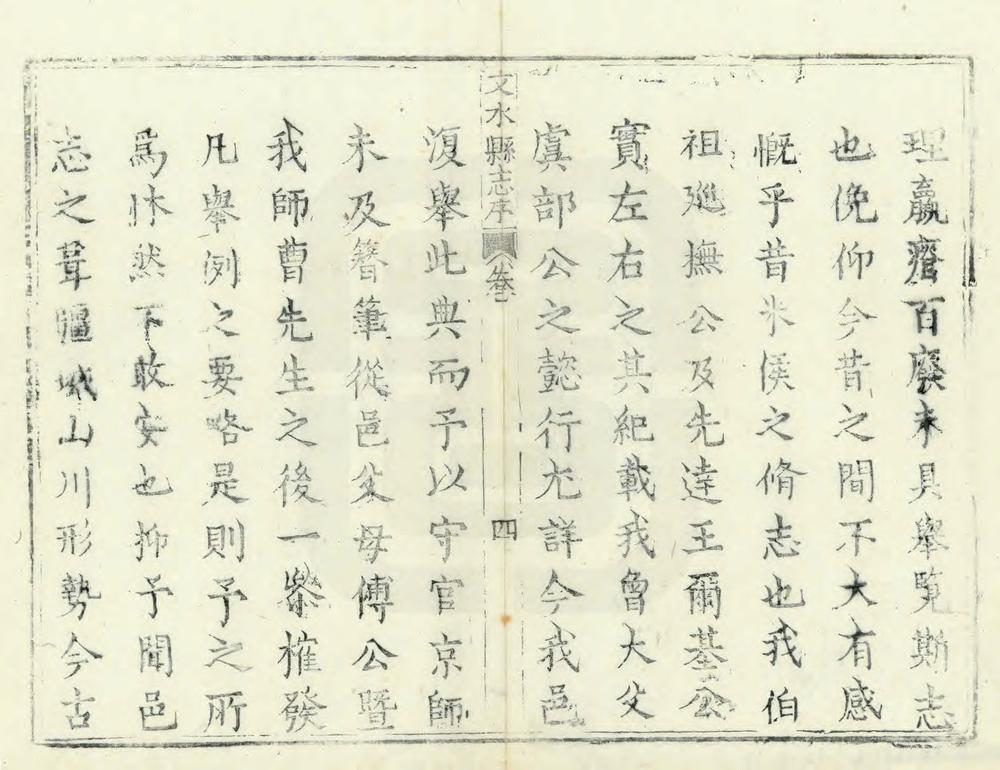 理羸瘠百廢未具舉覽斯志
也俛仰今昔之間不大有感
慨乎昔米侯之脩志也我伯
祖廵撫公及先達王爾基公
實左右之其紀載我曾大父
虞部公之懿行尤詳今我邑
文水縣志序 卷 四
復舉此典而予以守官京師
未及簪筆從邑父母傅公暨
我師曹先生之後一叅搉發
凡舉例之要略是則予之所
爲怵然不敢安也抑予聞邑
志之葺疆域山川形勢今古